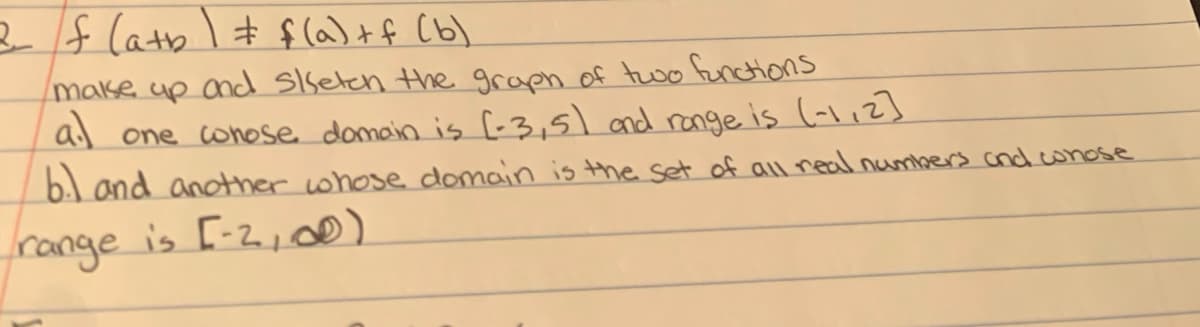 2 f (a+b) ≠ f(a)+f (b)
make up and sketch the graph of two functions
a.) one whose domain is [-3,5) and range is (-1,2]
b.) and another whose domain is the set of all real numbers and whose
range is [-2,∞)